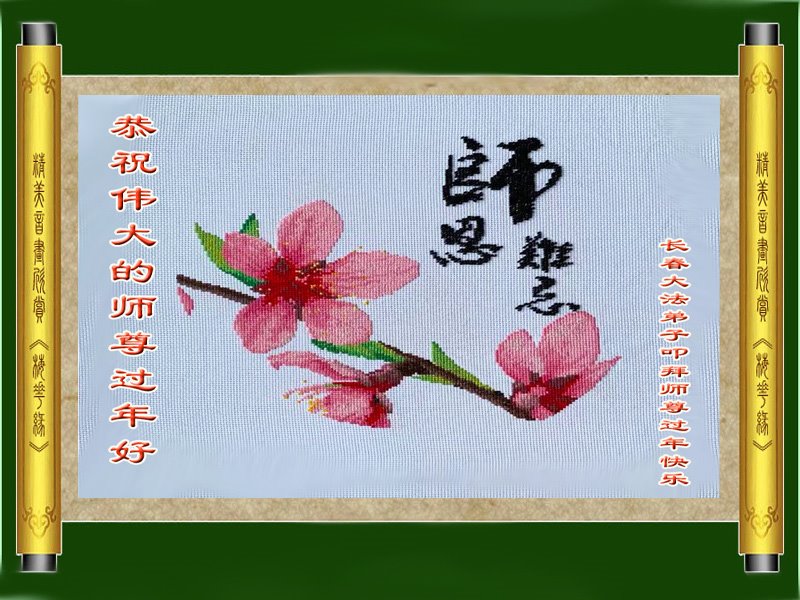 恭祝伟大的师尊过年好
師恩難忘
长春大法弟子叩拜师尊过年快乐
精美音畫欣賞《梅华缘》
精美音畫欣賞《梅华缘》